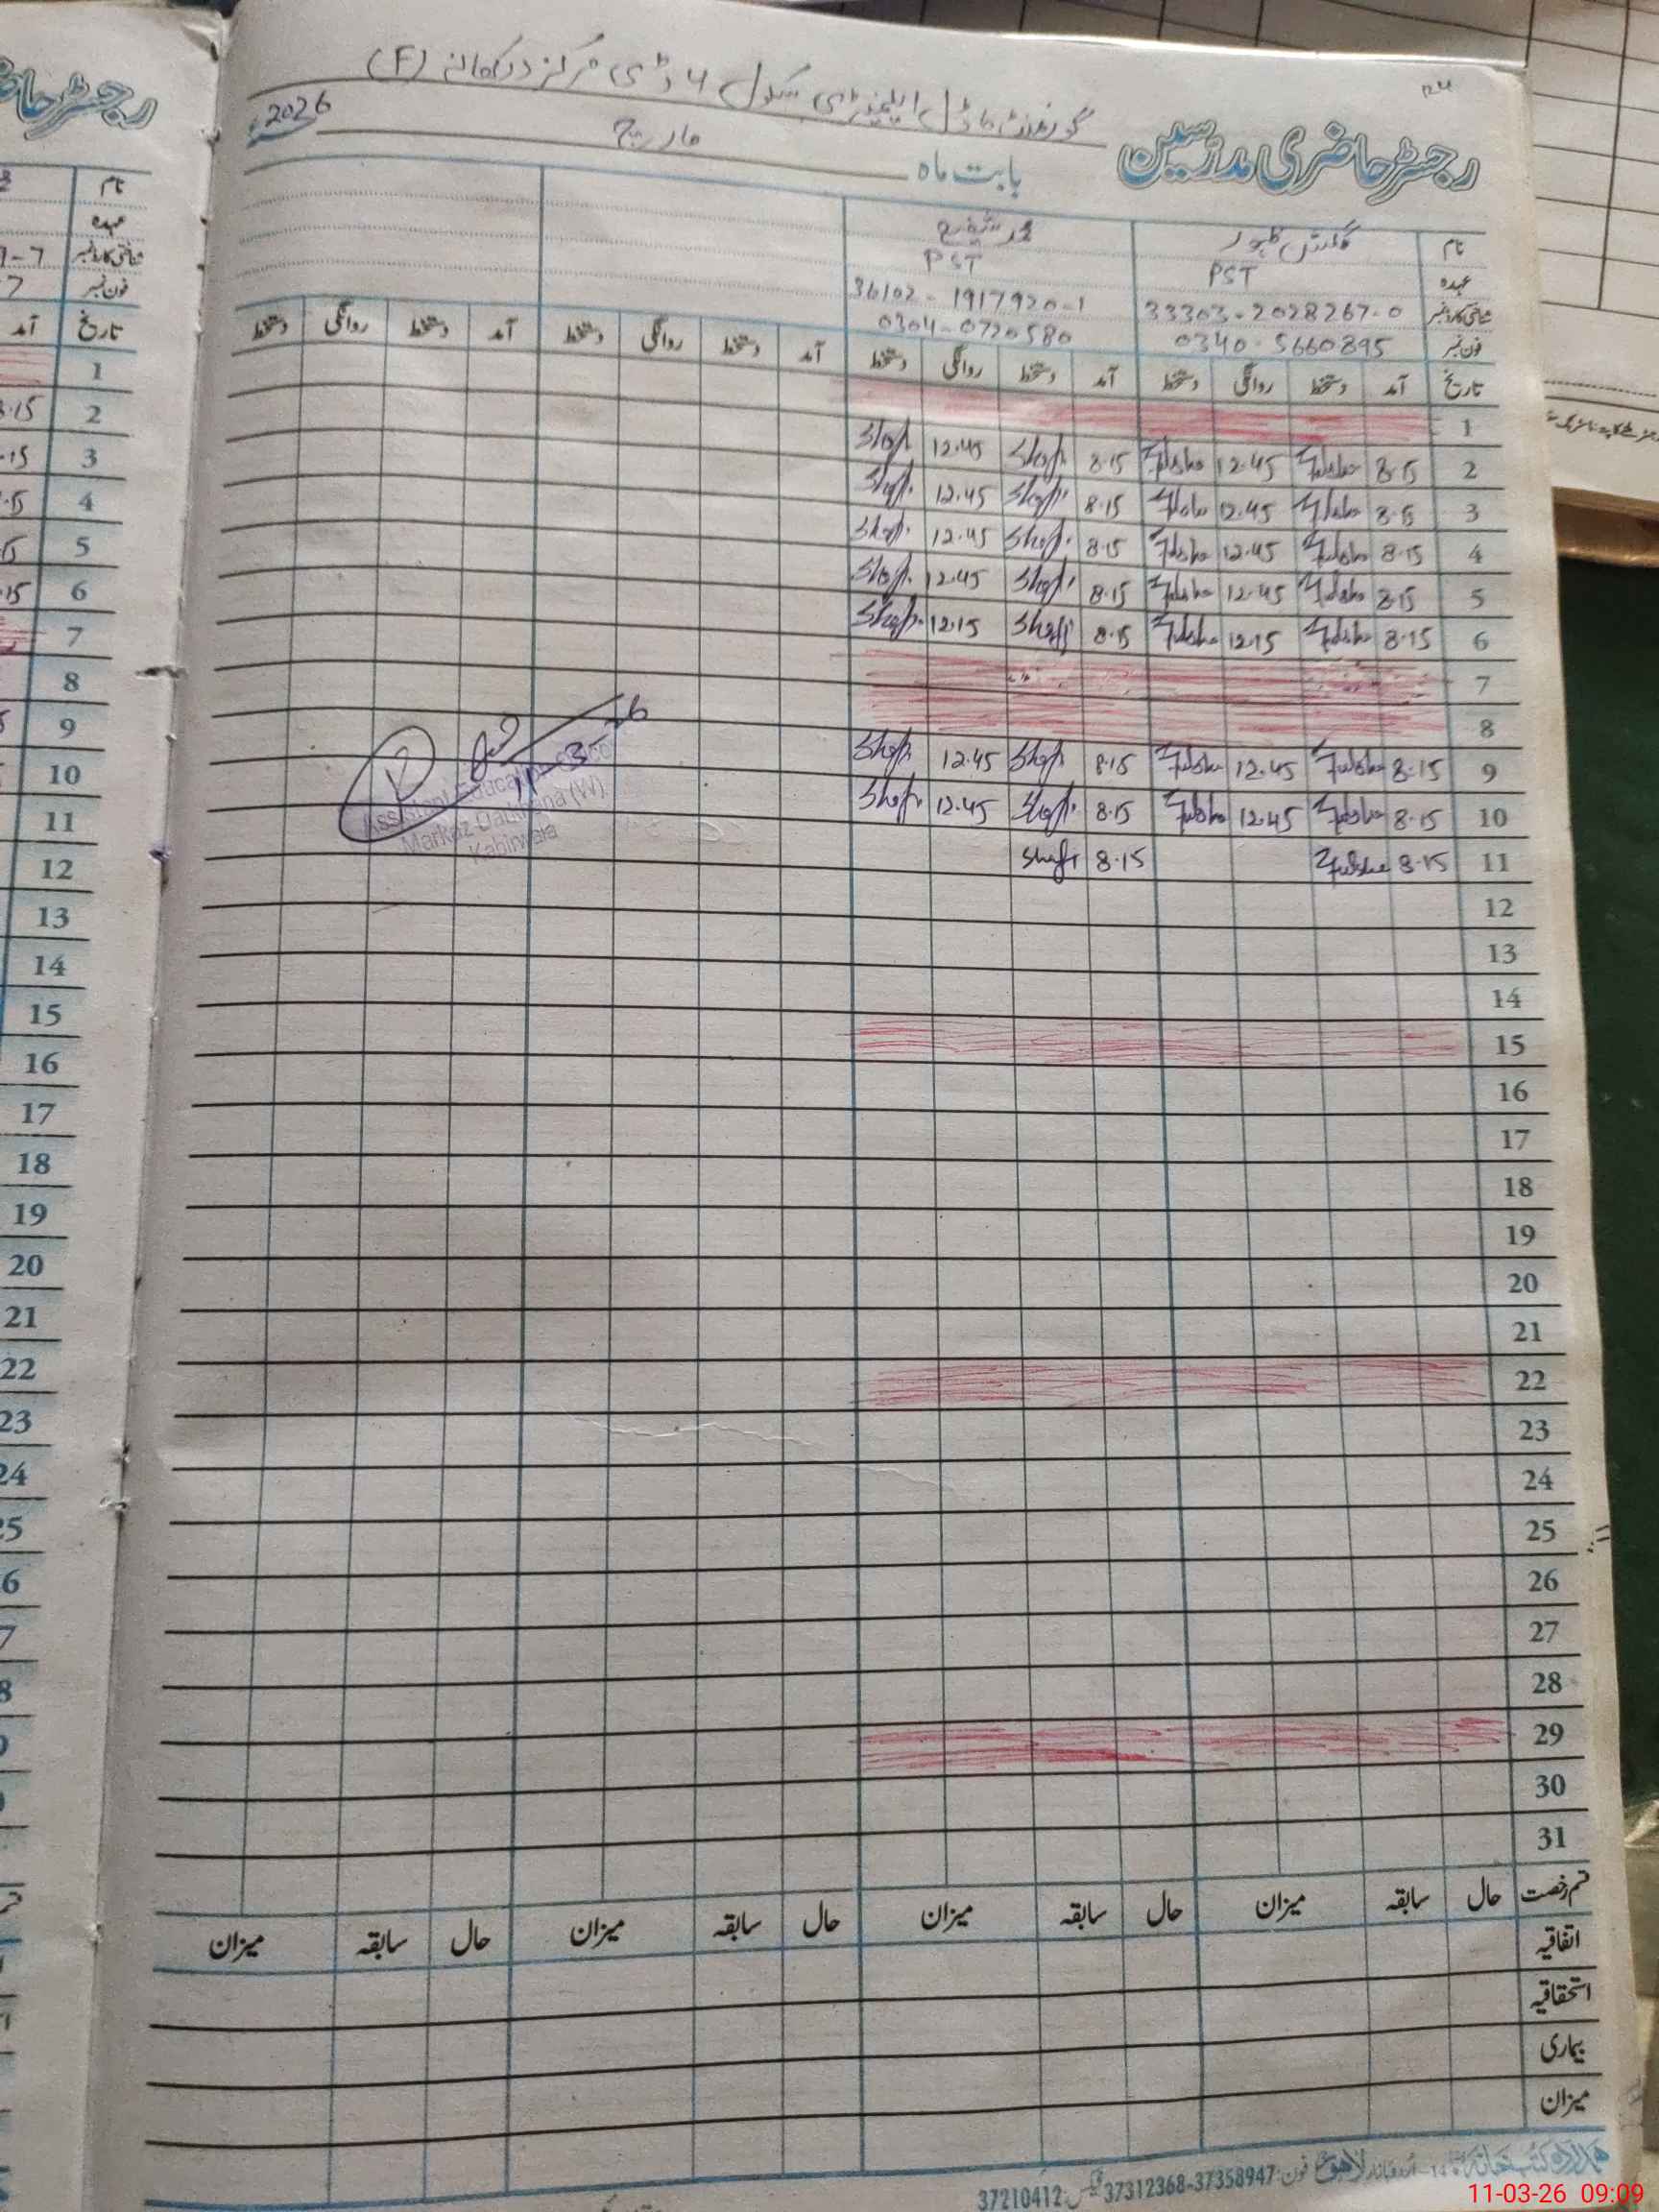 گورنمنٹ ماڈل ایلیمنٹری سکول 4 ڈی مرکز (F)
رجسٹر حاضری مدرسین
بابت ماہ مارچ 2026
نام محمد شفیع
عہدہ PST PST
شناختی کارڈ نمبر 33303-2028267-0 36102-1917920-1
فون نمبر 0340-5660895 0304-0720580
تاریخ آمد دستخط روانگی دستخط آمد دستخط روانگی دستخط آمد دستخط روانگی دستخط آمد دستخط روانگی دستخط
1
2 8.15 12.45 8.15 Shafi 12.45 Shafi
3 8.15 12.45 8.15 Shafi 12.45 Shafi
4 8.15 12.45 8.15 Shafi 12.45 Shafi
5 8.15 12.45 8.15 Shafi 12.45 Shafi
6 8.15 12.15 8.15 Shafi 12.15 Shafi
7
8
9 8.15 12.45 8.15 Shafi 12.45 Shafi
10 8.15 12.45 8.15 Shafi 12.45 Shafi
11 8.15 8.15 Shafi
12
13
14
15
16
17
18
19
20
21
22
23
24
25
26
27
28
29
30
31
Assistant Education
Markaz (W)
Kabirwala
قسم رخصت حال سابقہ میزان حال سابقہ میزان حال سابقہ میزان حال سابقہ میزان
اتفاقیہ
استحقاقیہ
بیماری
میزان
اردو بازار لاہور فون: 37312368-37358947 فیکس: 37210412
رجسٹر
نام
عہدہ
شناختی کارڈ نمبر
فون نمبر
تاریخ
آمد
1
2
3
4
5
6
7
8
9
10
11
12
13
14
15
16
17
18
19
20
21
22
23
24
11-03-26 09:09